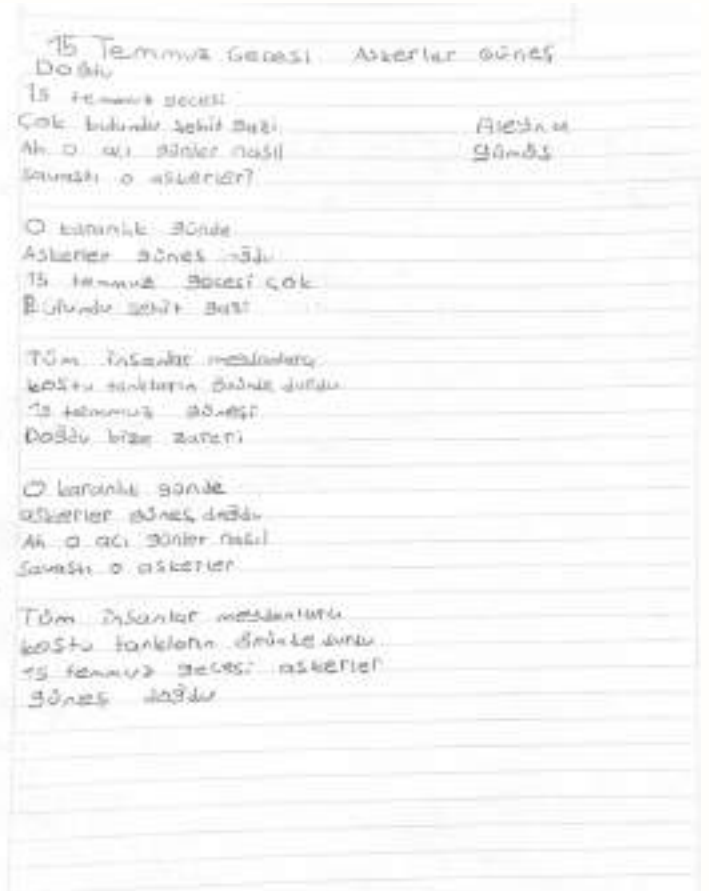 15 Temmuz Gecesi Askerler Güneş
Doğdu
15 temmuz gecesi
Çok bulundu şehit gazi
Ah o acı günler nasıl
savaştı o askerler?
gümüş
O karanlık günde
Askerler güneş doğdu
15 temmuz gecesi çok
Bulundu şehit gazi
Tüm insanlar meydanlara
koştu tankların önünde durdu
15 temmuz güneşi
Doğdu bize zaferi
O karanlık günde
askerler güneş doğdu
Ah o acı günler nasıl
Savaştı o askerler
Tüm insanlar meydanlara
koştu tankların önünde durdu
15 temmuz gecesi askerler
güneş doğdu